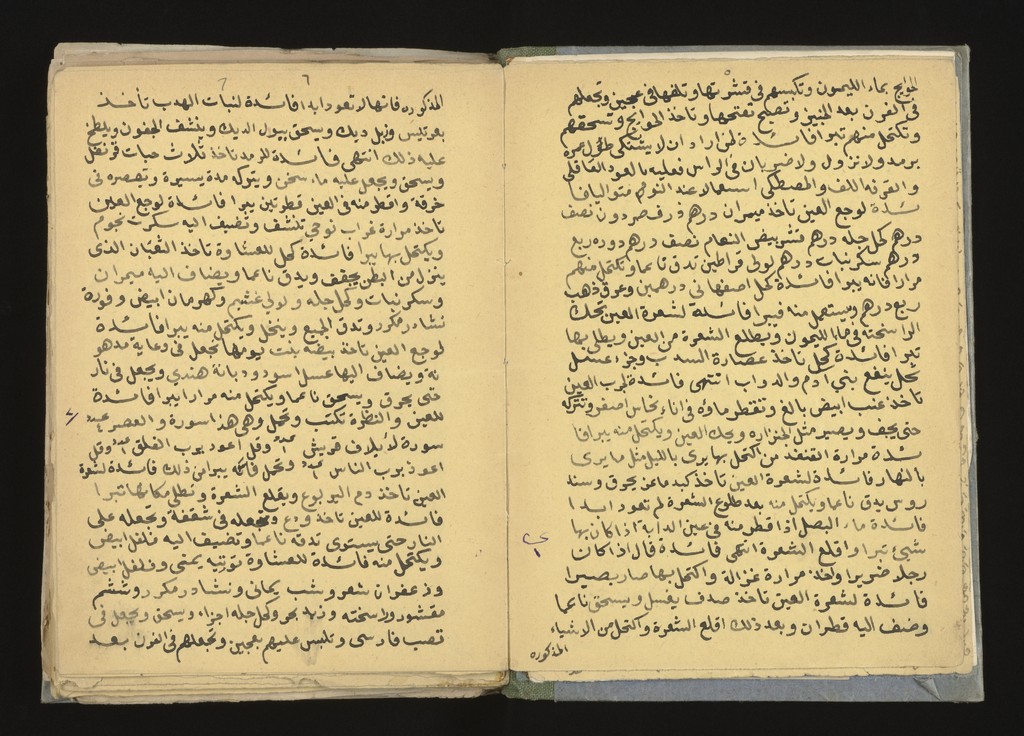 ٥
الحوايج بماء الليمون وتكبسهم في قشرتها وتلفها في عجين وتجعلهم
في الفرن بعد الخبيز وتصبح تفتحها وتاخذ الحوايج وتسحقهم
وتكتحل منهم تبرا فائدة لمن اراد ان لا يشتكي طول عمره
برمد ولا نزول ولا ضربان في الراس فعليه بالعود القاقلي
والقرفه اللف والمصطكي استعمالا عند النوم متواليا فا
ئدة لوجع العين تاخذ ميمران درهم ذرف صردون نصف
درهم كحل جله درهم قشر بيض النعام نصف درهم دوده ربع
درهم سكر نبات درهم لولي قراطين تدق ناعما وتكتحل منهم
مرارا فانه يبرا فائدة كحل اصفهاني درهمين وعرق ذهب
ربع درهم ويستعمل منه فيبرا فائدة لشعرة العين تحك
الراسخته في ماء الليمون ويطلع الشعرة من العين ويطلي بها
تبرا فائدة كحل تاخذ عصارة السدب وجزا عسل
نحل ينفع بني ادم والدواب انتهى فائدة لجرب العين
تاخذ عنب ابيض بالغ وتقطر ماؤه في اناء نحاس اصفر وتتركه
حتى يجف ويصير مثل الجنزاره ويحك العين ويكتحل منه يبرا فا
ئدة مرارة القنفد من اكتحل بها يرى بالليل مثل ما يرى
بالنهار فائدة لشعرة العين تاخذ كبد ماعز يحرق وسند
روس يدق ناعما ويكتحل منه بعد طلوع الشعرة لم تعود ابدا
فائدة ماء البصل اذا قطر منه في عين الدابة اذا كان بها
شيئ تبرا واقلع الشعرة انتهى فائدة قال اذا كان
رجلا ضريرا واخذ مرارة غزالة واكتحل بها صار بصيرا
فائدة لشعرة العين تاخذ صدف يغسل ويسحق ناعما
وضف اليه قطران وبعد ذلك اقلع الشعرة واكتحل من الاشياء
المذكوره
٦
المذكوره فانها لا تعود ابدا فائدة لنبات الهدب تاخذ
بعر تيس وزبل ديك ويسحق ببول الديك وينشف الجفون ويلطخ
عليه ذلك انتهى فائدة للرمد تاخذ ثلاث حبات قرنفل
ويسحق ويجعل عليه ماء سخن ويتركه مدة يسيرة وتعصره في
خرقة واقطر منه في العين قطرتين يبرا فائدة لوجع العين
تاخذ مرارة غراب نوحي تنشف وتضيف اليه سكرت نجوم
ويكتحل بها يبرا فائدة كحل للعشاوة تاخذ الثعبان الذي
ينزل من البطن يجفف ويدق ناعما ويضاف اليه ميمران
وسكر نبات وكحل جله ولولي غشيم وكهرمان ابيض وفورة
نشادر مكرر وتدق الجميع وينخل ويكتحل منه يبرا فائدة
لوجع العين تاخذ بيضه بنت يومها تجعل في دعاية مدهو
نه ويضاف اليها عسل اسود ودبانة هندي ويجعل في نار
حتى يحرق ويسحق ناعما ويكتحل منه مرارا يبرا فائدة
للعين والنظرة تكتب وتحمل وهي هذا سورة والعصر
سورة لأيلاف قريش وقل اعوذ برب الفلق وقل
اعوذ برب الناس وتحمل فانه يبرا من ذلك فائدة لشعرة
العين تاخذ دم اليربوع ويقلع الشعرة وتطلي مكانها تبرا
فائدة للعين تاخذ ودع وتجعله في شقفة وتجعله على
النار حتى يستوي تدقه ناعما وتضيف اليه فلفل ابيض
ويكتحل منه فائدة للعشاوة توتيه يمني وفلفل ابيض
وزعفران شعر وشب يماني ونشادر مكرر وششم
مقشور وراسخته وزبد بحر وكحل جله اجزاء ويسحق ويجعل في
قصب فارسي وتلبس عليهم بعجين وتجعلهم في الفرن بعد